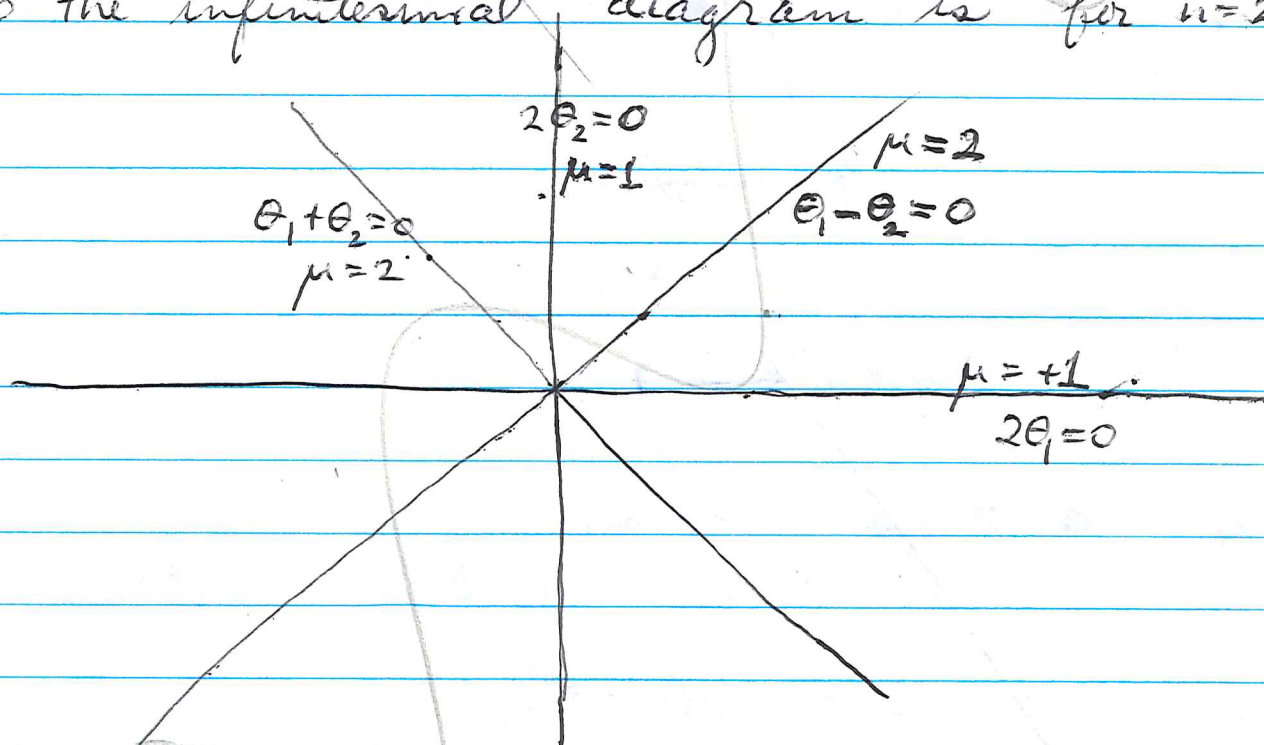 the infinitesimal diagram is for n=2
2θ₂=0
μ=1
μ=2
θ₁-θ₂=0
θ₁+θ₂=0
μ=2
μ=+1
2θ₁=0